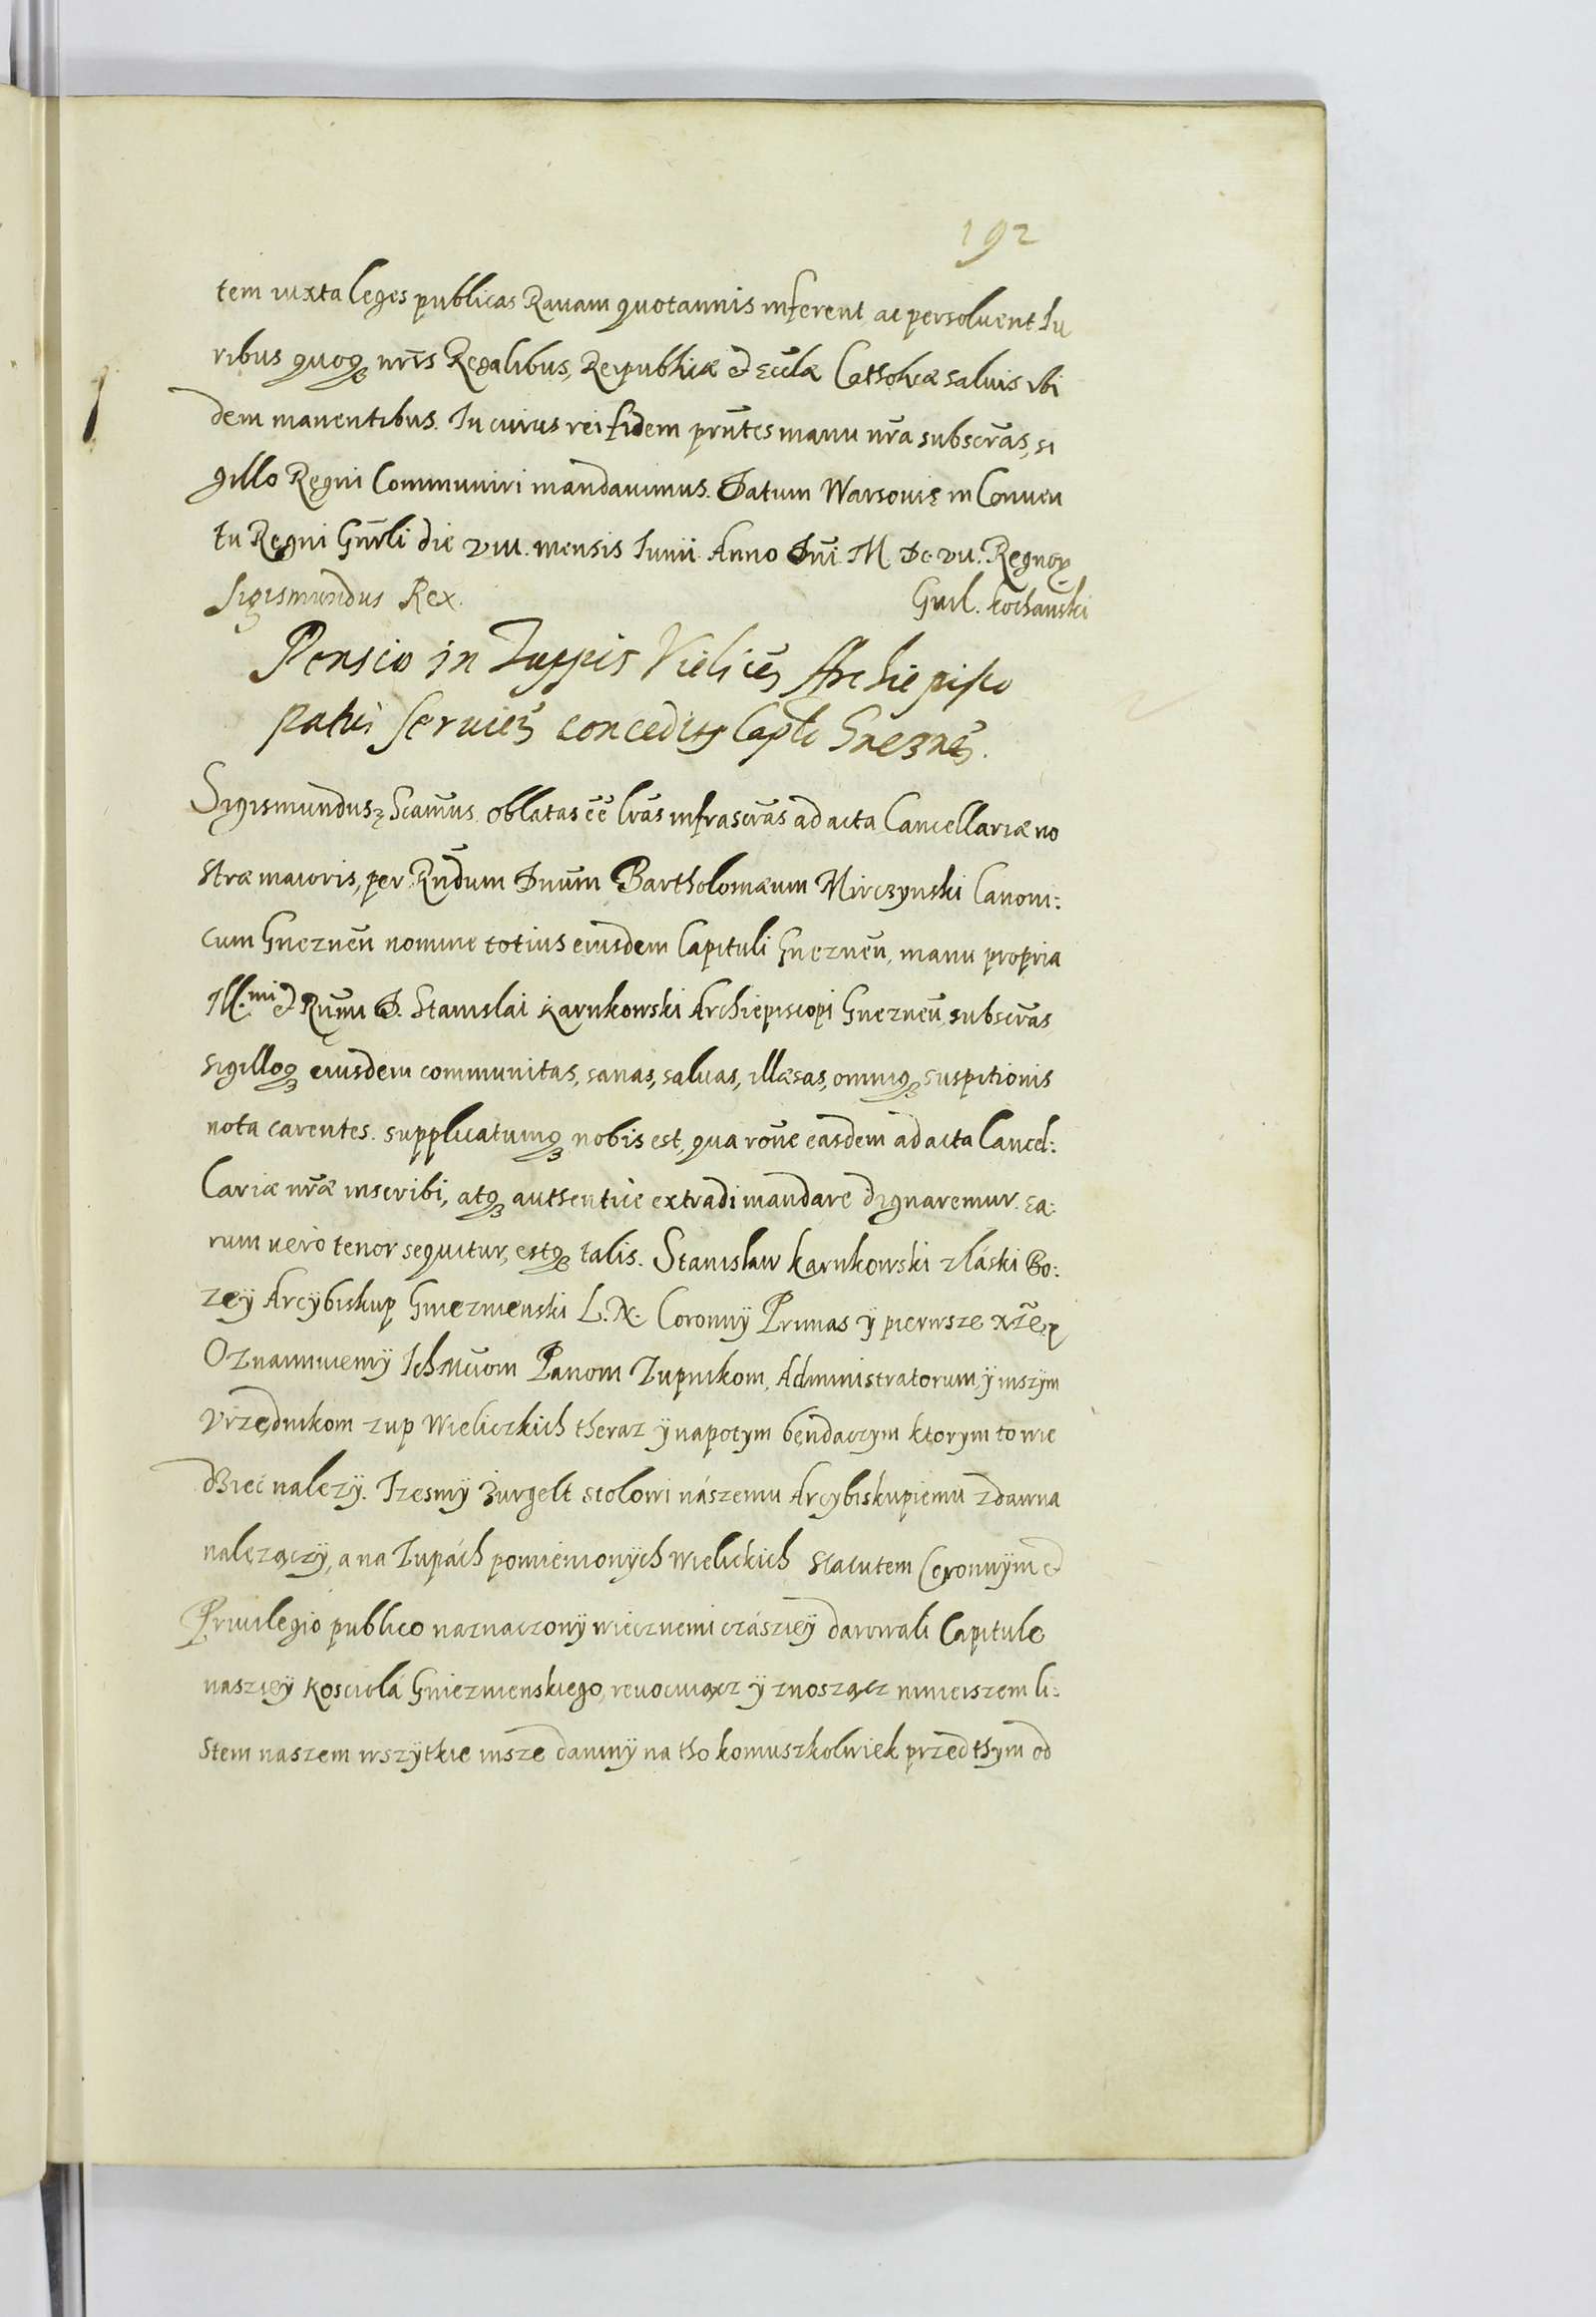 192
tem iuxta leges publicas Rauam quotannis inferent ac persoluent Iu
ribus quoq₃ nr̃is Regalibus, Reipublicæ et Eccl̃æ Catholicæ saluis ibi
dem manentibus. In cuius rei fidem prñtes manu nr̃a subscr̃as, si
gillo Regni Communiri mandauimus. Datum Warsouię in Conuen
tu Regni Gnr̃li die viii. mensis Iunii Anno Dñi M. Dc. vii. Regnoꝝ
Sigismundus Rex.
Guil. Kochański
Pensio in Zuppis Vielicen̄ Archiepisco
patui seruien̄ conceditur Caplo Gneznen̄.
Sigismundus ₃ Scimus. oblatas eē lr̃as infrascr̃as ad acta Cancellariæ no
stræ maioris, per Rñdum Dnũm Bartholomæum Mirczynski Canoni:
cum Gneznen̄ nomine totius eiusdem Capituli Gneznen̄, manu propria
Ill.mi et Rũmi D. Stanislai Karnkowski Archiepiscopi Gneznen̄ subscr̃as
sigilloq₃ eiusdem communitas, sanas, saluas, illæsas, omniq₃ suspitionis
nota carentes. supplicatumq₃ nobis est, qua rõne easdem ad acta Cancel:
lariæ nr̃æ inscribi, atq₃ authentice extradi mandare dignaremur. Ea:
rum uero tenor sequitur, estq₃ talis. Stanisław Karnkowski z łáski Bo:
zeÿ Arcÿbiskup Gnieznienski L. N. Coronnÿ Primas ÿ pierwsze xżę
Oznaimuiemÿ Ich Mciom Panom Zupnikom, Administratorum, ÿ inszÿm
Vrzędnikom zup Wieliczkich theraz ÿ napotym będaczym ktorym to wie
dzieć nalezÿ. Izesmÿ Jurgelt stolowi nászemu Arcybiskupiemu zdawna
nalezączÿ, a na Zupách pomienionÿch Wielickich Statutem Coronnÿm et
Priuilegio publico naznaczonÿ wiecznemi czászieÿ darowali Capitule
naszieÿ Kosciolá Gnieznienskiego, reuocuiącz ÿ znoszącz ninieiszem li:
stem naszem wszÿtkie insze daninÿ na tho komuszkolwiek przed thÿm od